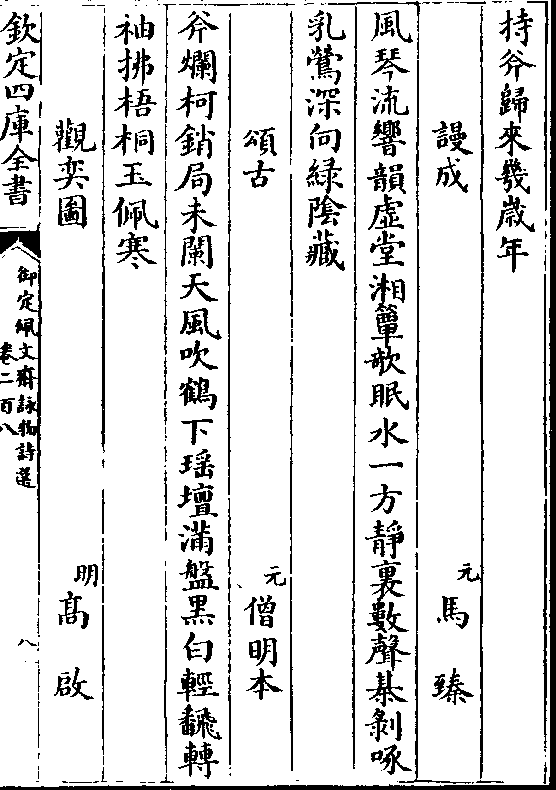 持斧歸來幾歲年
謾成 元 馬 臻
風琴流響韻虛堂湘簟欹眠水一方靜裏數聲棊剝啄
乳鶯深向緑陰藏
頌古 元 僧明本
斧爛柯銷局未闌天風吹鶴下瑶壇滿盤黒白輕飜轉
袖拂梧桐玉佩寒
觀奕圖 明 髙 啟
欽定四庫全書
御定佩文齋詠物詩選
卷二百八
八